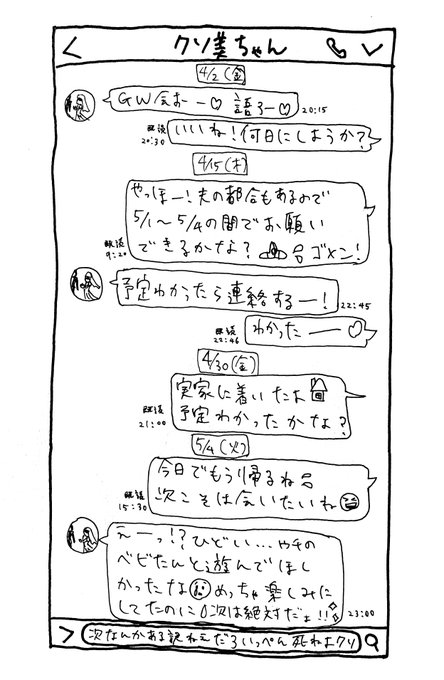 クソ美ちゃん
4/2(金)
GW会おー♡ 語ろー♡
20:15
既読
20:30
いいね!何日にしようか?
4/15(木)
やっほー!夫の都合もあるので
5/1〜5/4の間でお願い
できるかなぁ? ゴメン!
既読
9:20
予定わかったら連絡するー!
22:45
既読
22:46
わかったー♡
4/30(金)
実家に着いたよ
予定わかったかな?
既読
21:00
5/4(火)
今日でもう帰るね
次こそは会いたいね
既読
15:30
えーっ!?ひどい…ウチの
ベビたんと遊んでほし
かったなめっちゃ楽しみに
してたのに次は絶対だよ!!
23:00
次なんかある訳ねえだろいっぺん死ねよクソ